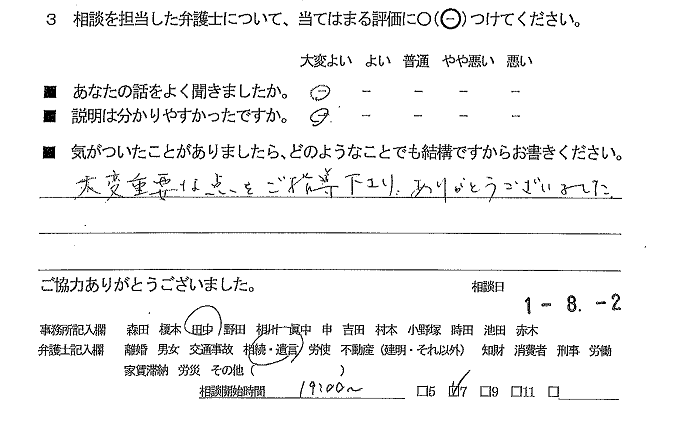 3 相談を担当した弁護士について、当てはまる評価に○(⊖)つけてください。
大変よい よい 普通 やや悪い 悪い
■ あなたの話をよく聞きましたか。 ⊖ － － － －
■ 説明は分かりやすかったですか。 ⊖ － － － －
■ 気がついたことがありましたら、どのようなことでも結構ですからお書きください。
大変重要な点をご指導下さり、ありがとうございました。
ご協力ありがとうございました。 相談日
1-8.-2
事務所記入欄 森田 榎本 田中 野田 相川 眞中 申 吉田 村本 小野塚 時田 池田 赤木
弁護士記入欄 離婚 男女 交通事故 相続・遺言 労使 不動産（建明・それ以外） 知財 消費者 刑事 労働
家賃滞納 労災 その他（ ）
相談開始時間 19:00~ □5 ☑7 □9 □11 □